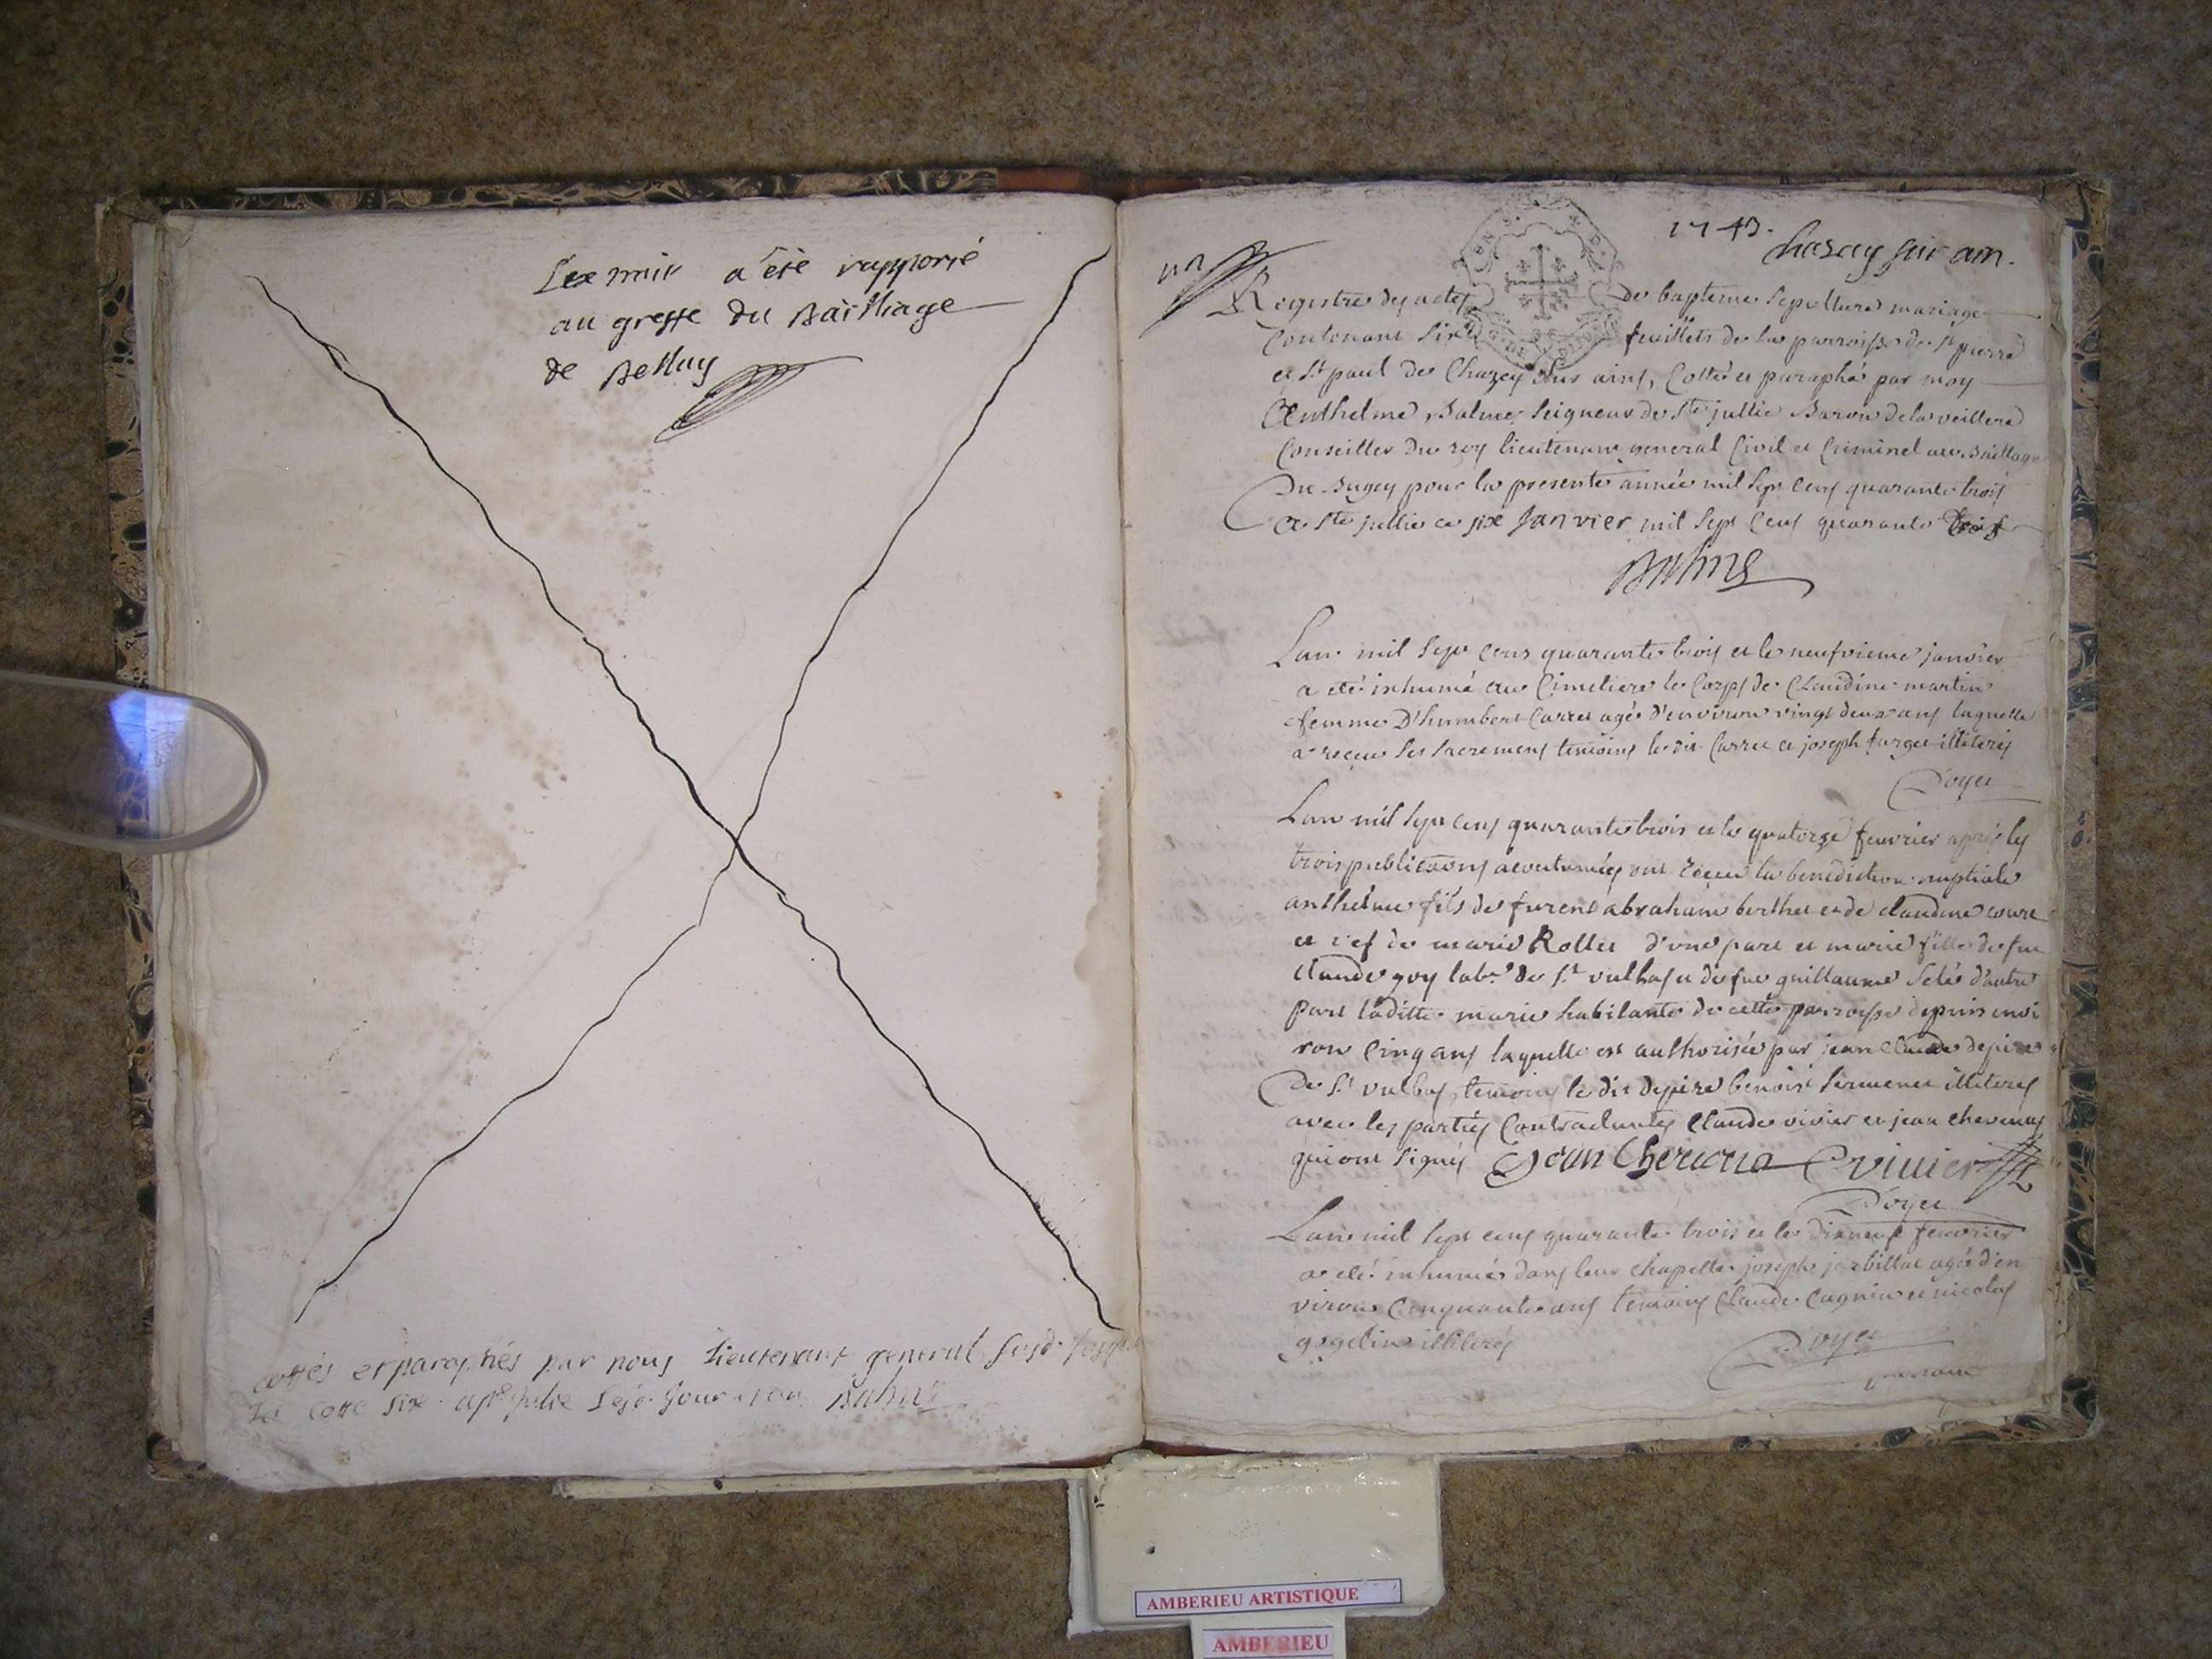 a été rapporté
au greffe du Bailliage
de Belley
cottés et paraphés par nous Lieutenant general susd.
Balme
1743.
chazey sur ain.
un
Registre des actes de bapteme sepulture mariage
contenant six feuillets de la parroisse de St pierre
et St paul de Chazey sur ains, Cotté et paraphé par moy
Anthelme Balme seigneur de Ste jullie Baron de la veillere
Conseiller du roy lieutenant general Civil et Criminel au Baillage
Du Bugey pour la presente année mil sept cens quarante trois
a Ste jullie ce six Janvier mil sept cens quarante trois
Balme
Lan mil sept cens quarante trois et le neufvieme janvier
a eté inhumé au Cimetiere le Corps de Claudine martin
femme D'humbert Carret agée d'environ vingt deux ans laquelle
a reçeu ses sacremens temoins le dit Carret et joseph farget illiterés
Doyet
Lan mil sept cens quarante trois et le quatorze fevrier après les
trois publications acoutumées ont reçeu la benediction nuptiale
anthelme fils de furent abraham berthet et de claudine
et vef de marie Rollet d'une part et marie fille de fue
Claude goy labr. de St vulbas et de fue guillaume d'autre
part laditte marie habitante de cette parroisse depuis envi
ron Cinq ans laquelle est authorisée par jean Claude
De St vulbas, temoins le dit benoist illiterés
avec les parties Contractantes Claude vivier et jean chevenas
qui ont signés Jean C vivier
Doyet
Lan mil sept cens quarante trois et le dixneuf fevrier
a eté inhumés dans leur chapelle joseph agée d'en
viron Cinquante ans temoins Claude et nicolas
illiterés
Doyet
AMBERIEU ARTISTIQUE
AMBERIEU